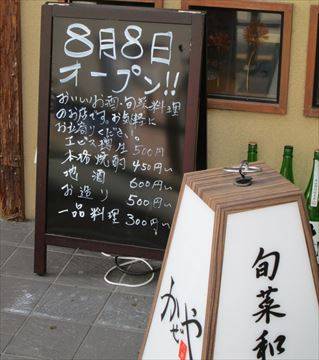 8月8日
オープン!!
おいしいお酒・旬菜料理
のお店です。お気軽に
お立寄りください。
エビス 生 500円
本格焼酎 450円〜
地酒 600円〜
お造り 500円〜
一品料理 300円〜
旬菜和
かぜや